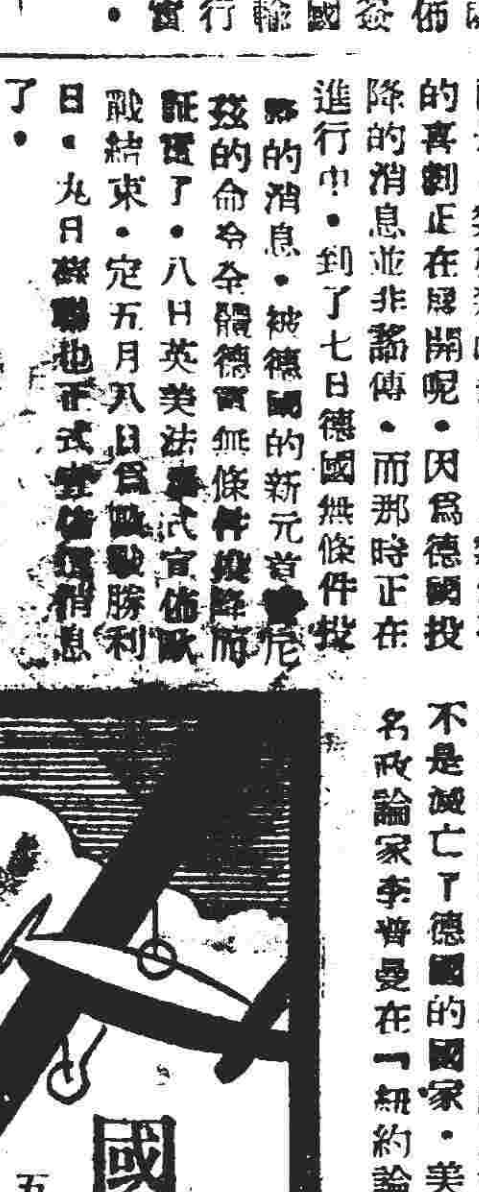 佈
簽
國
輸
行
實。
的喜劇正在展開呢。因爲德國投
降的消息並非謠傳。而那時正在
進行中。到了七日德國無條件投
的消息。被德國的新元首尼
茲的命令全體德軍無條件投降而
証實了。八日英美法正式宣佈歐
戰結束。定五月八日爲歐戰勝利
日。九日蘇聯也正式宣佈這消息
了。
不是滅亡了德國的國家。美
名政論家李普曼在「紐約論
國
五